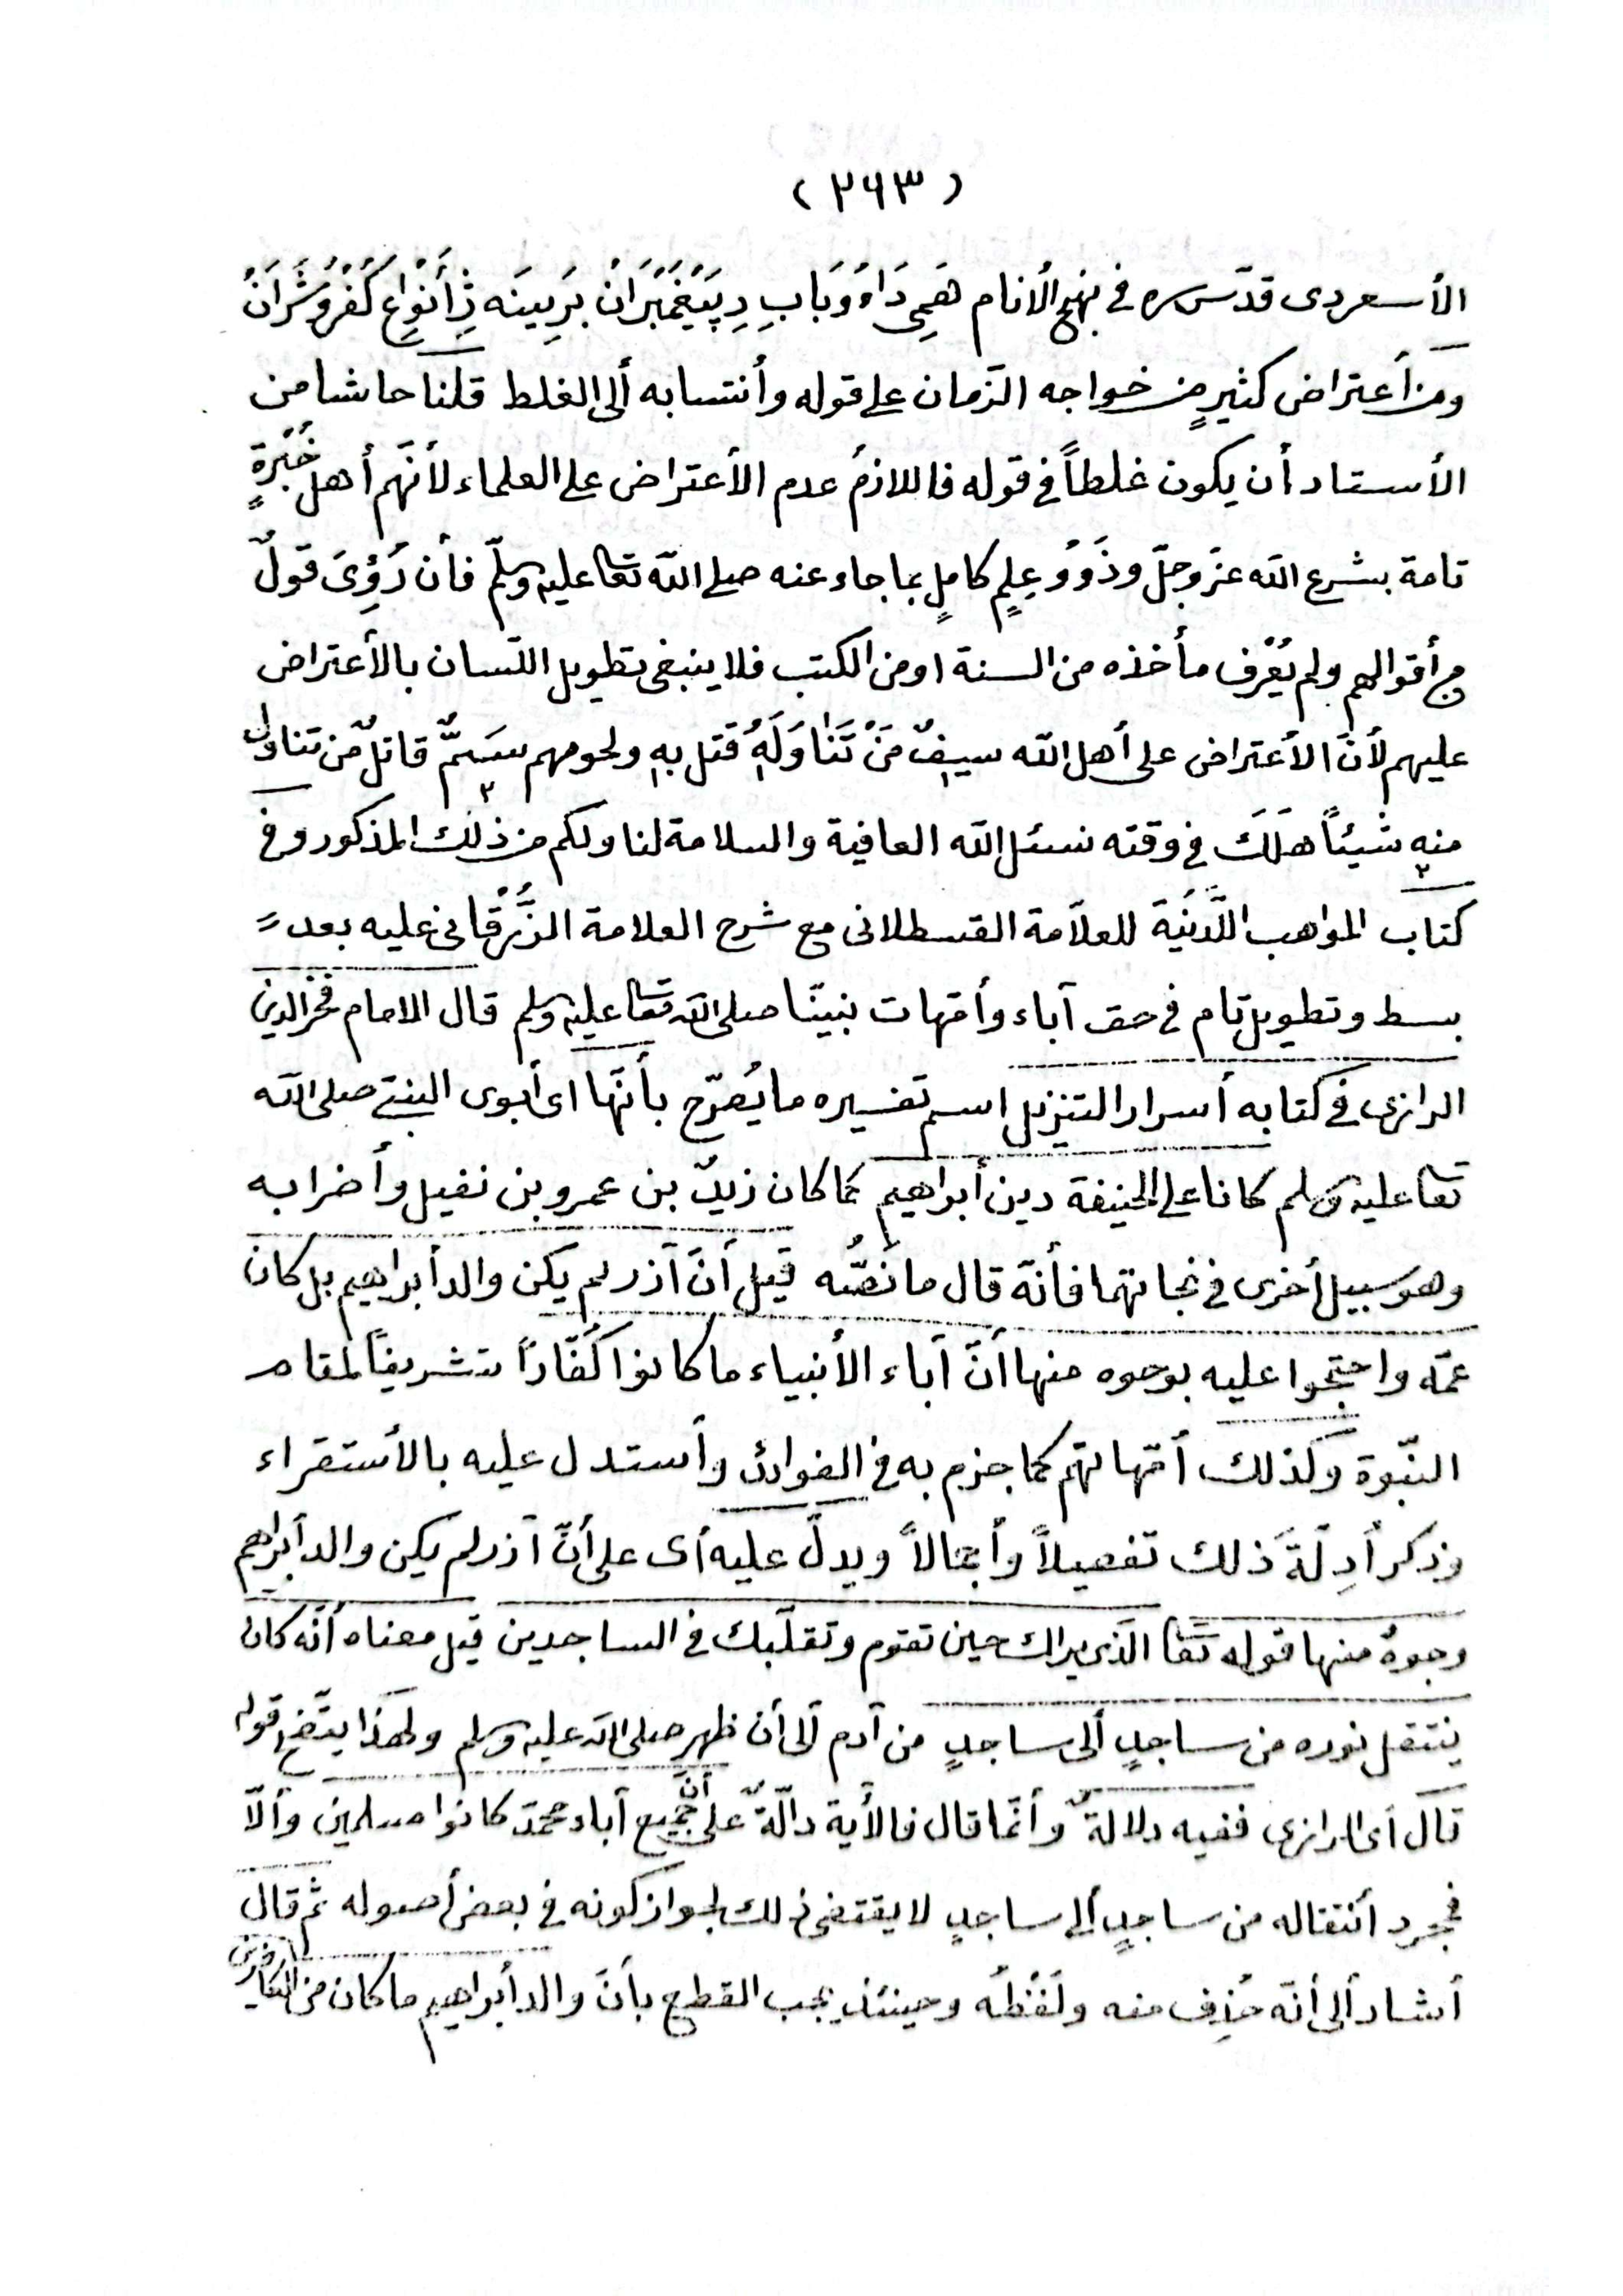 (٢٦٣)
الأسعردى قدّس سره فى نهج الأنام هَمِى دَاهُ وَبَابِ دِ پَيَغمَبَرَانْ بَرِينَه ژِأَنْوِاعِ كُفْرُ وشَرَانْ
ومن أعتراض كثيرٍ من خواجه الزمان على قوله وأنتسابه ألى الغلط قلنا حاشا من
الأستاد أن يكون غلطاً فى قوله فاللازمُ عدم الأعتراض على العلماء لأنّهم أهل خُبْرةٍ
تامة بشرع الله عزّ وجلّ وذَوُو عِلمٍ كاملٍ بما جاء عنه صلى الله تعا عليه وسلّم فأن رُؤِىَ قولٌ
من أقوالهم ولم يُعْرف مأخذه من السنة او من الكتب فلا ينبغى تطويل اللّسان بالأعتراض
عليهم لأنّ الأعتراض على أهل الله سيفٌ مَنْ تَنَاوَلَهُ قُتل به ولحومهم سَمٌّ قاتلٌ من تناول
منه شيئاً هَلَكَ فى وقته نسئل الله العافية والسلامة لنا ولكم من ذلك المذكور وفى
كتاب المواهب اللَّدنيّة للعلاّمة القسطلانى مع شرح العلامة الزُّرْقانى عليه بعد
بسط وتطويل تام فى حق آباء وأمّهات نبيّنا صلى الله تعا عليه وسلم قال الامام فخر الدين
الرازى فى كتابه أسرار التنزيل اسم تفسيره ما يُصرّح بأنّها اى أبوى النبىّ صلى الله
تعا عليه وسلم كانا على الحنيفة دين أبراهيم كما كان زيدٌ بن عمرو بن نفيل وأضرابه
وهو سبيل أخرى فى نجاتهما فأنّه قال ما نَصُّه قيل أنّ آزر لم يكن والد أبراهيم بل كان
عمّه واحتجّوا عليه بوجوه منها أنّ آباء الأنبياء ما كانوا كُفّاراً تشريفاً لمقام
النبّوة وكذلك أمّهاتهم كما جزم به فى الفوائد وأستدل عليه بالأستقراء
وذكر أدِلّةَ ذلك تفصيلاً وأجمالاً ويدلّ عليه أى على أنّ آزر لم يكن والد أبراهيم
وجوهٌ منها قوله تعا الّذى يراك حين تقوم وتقلّبك فى الساجدين قيل معناه أنّه كان
ينتقل نوره من ساجدٍ ألى ساجدٍ من آدم ألى أن ظهر صلى الله عليه وسلم ولهذا يتّضح قوله
قال أى الرازى ففيه دلالةٌ وأنّما قال فالأية دالّةٌ على أنّ جميع آباء محمّد كانوا مسلمين وألاّ
فمجرد أنتقاله من ساجدٍ ألى ساجدٍ لا يقتضى ذلك لجواز كونه فى بعض أصوله ثم قال
أشار ألى أنّه حُذِف منه ولَفْظُه وحينئذٍ يجب القطع بأنّ والد أبراهيم ما كان من الكافرين